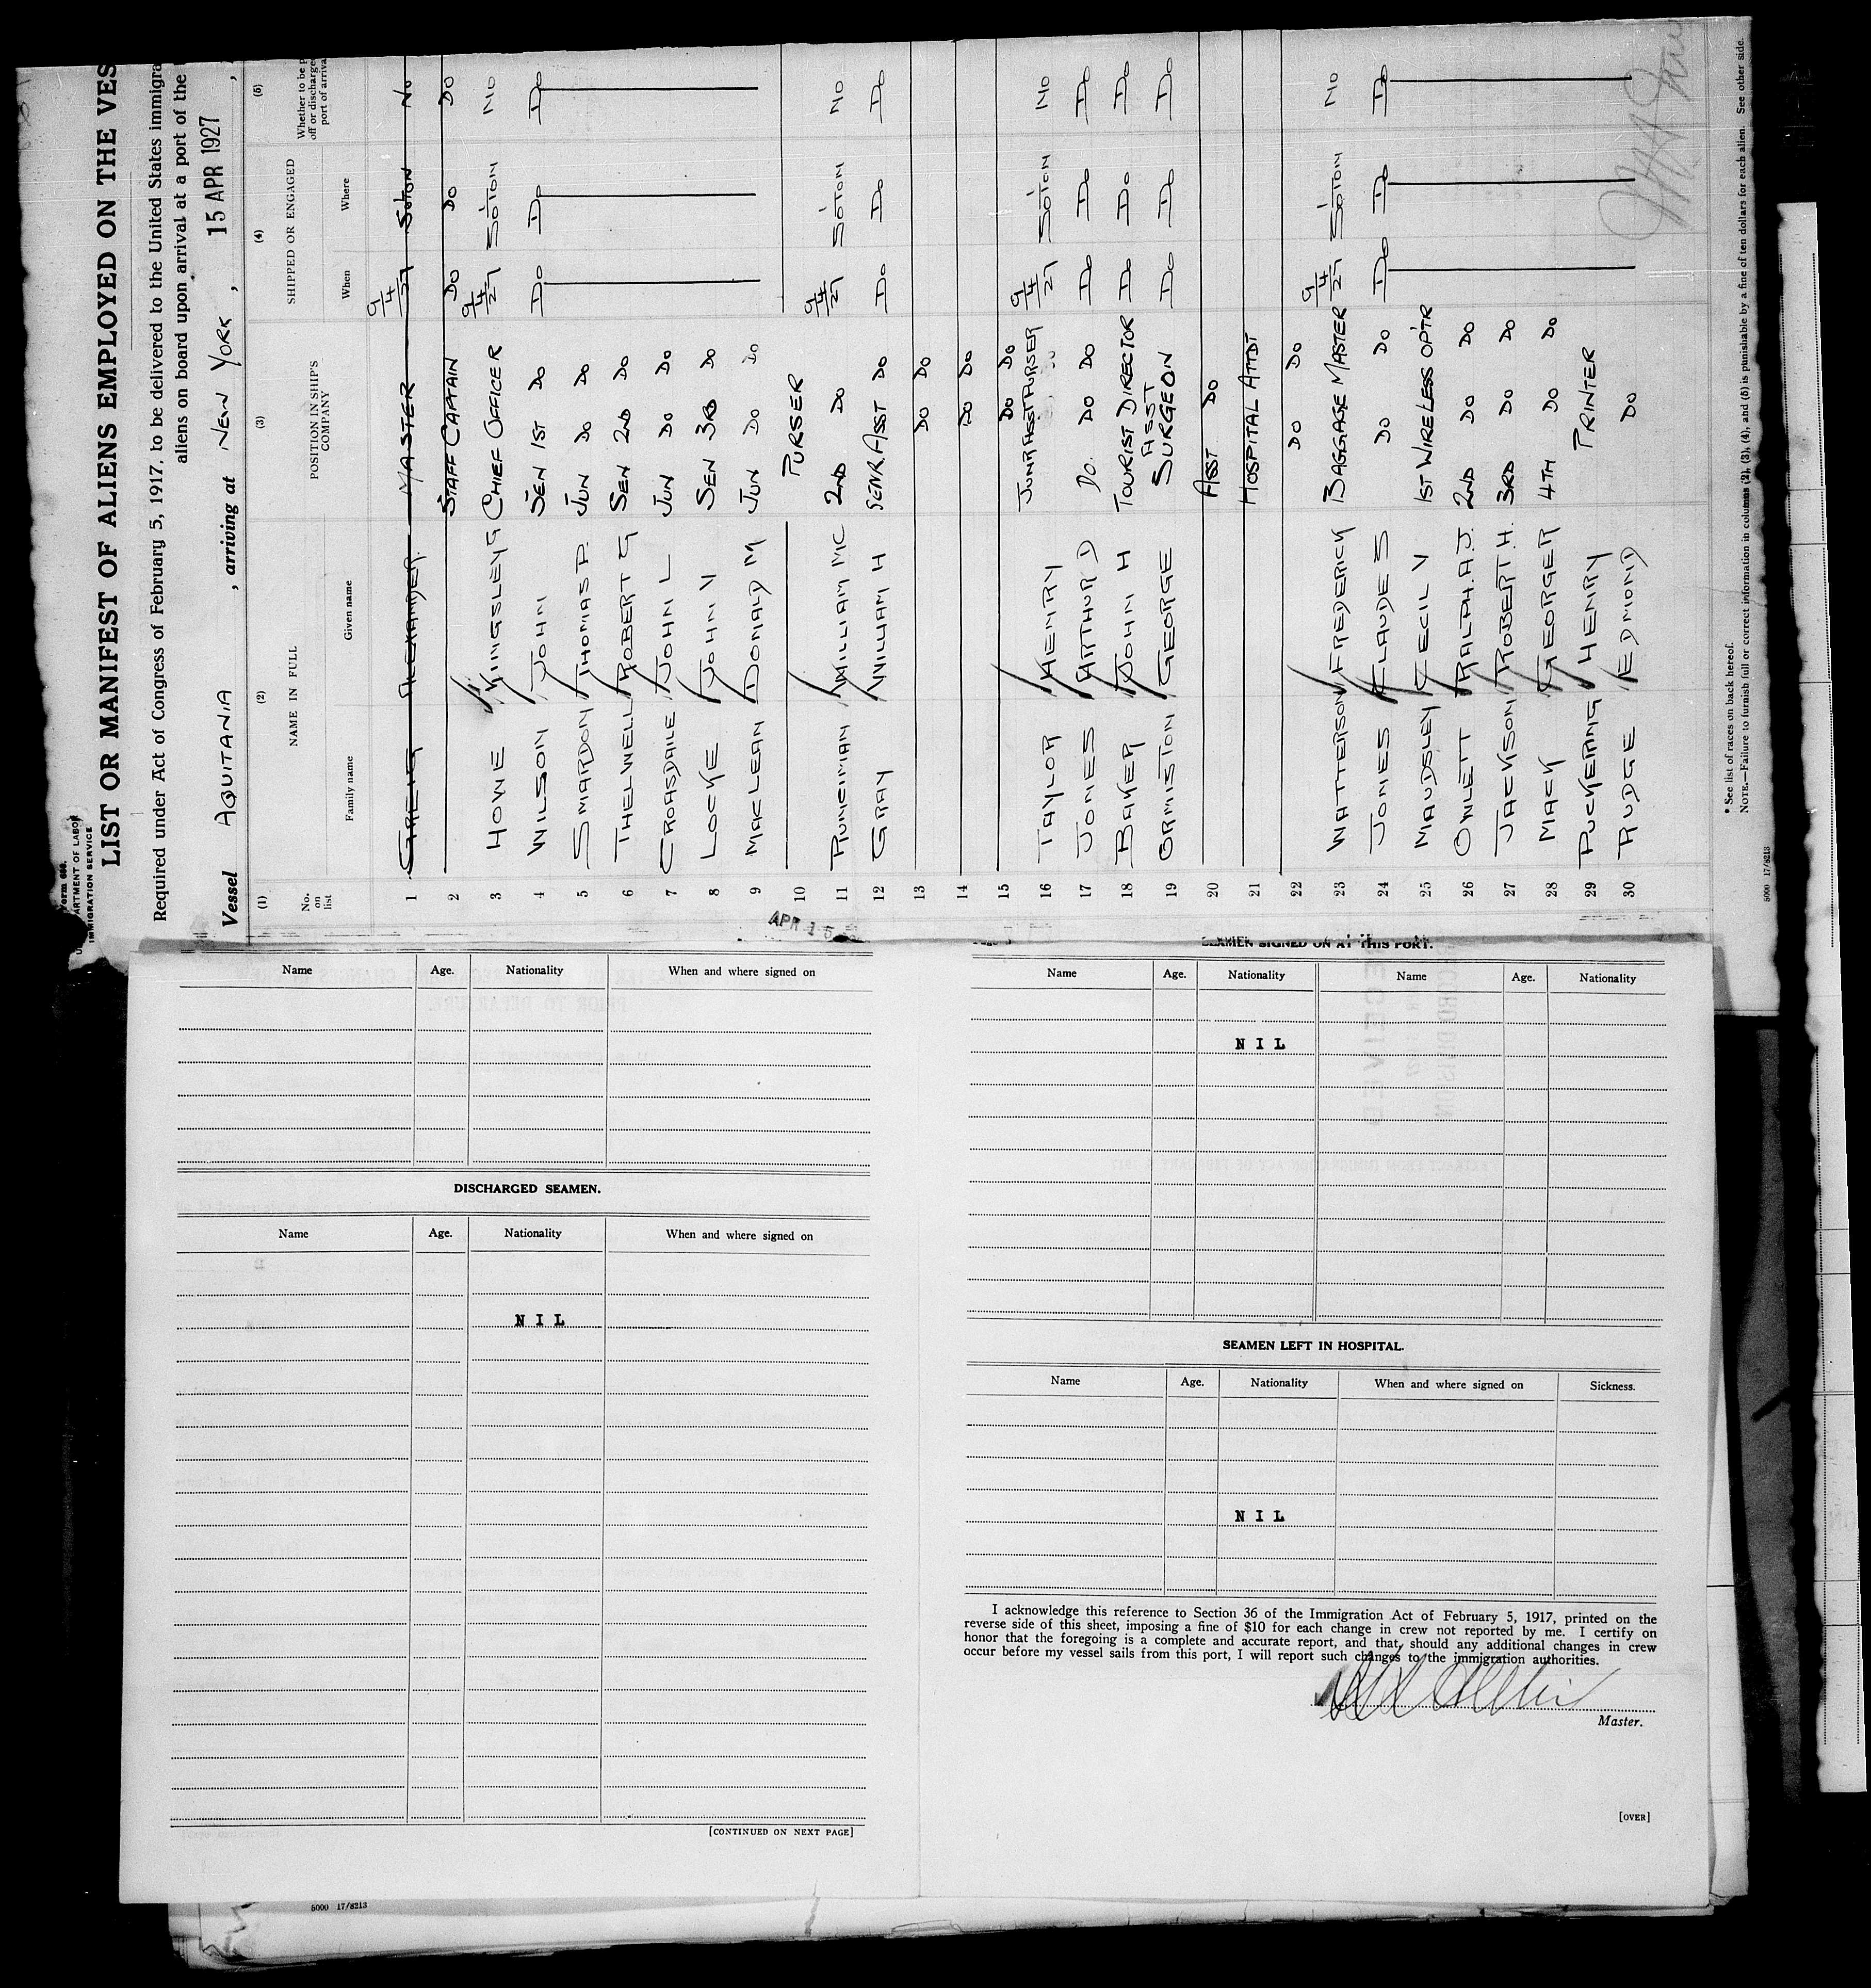 Form 680.
U. S. DEPARTMENT OF LABOR
IMMIGRATION SERVICE
LIST OR MANIFEST OF ALIENS EMPLOYED ON THE VES
Required under Act of Congress of February 5, 1917, to be delivered to the United States immigra
aliens on board upon arrival at a port of the
Vessel AQUITANIA , arriving at NEW YORK , 15 APR 1927 ,
(1) (2) (3) (4) (5)
No. on list NAME IN FULL POSITION IN SHIP'S COMPANY SHIPPED OR ENGAGED Whether to be p off or discharged port of arriva
Family name Given name When Where
1 GREIG ALEXANDER. MASTER 9/4/27 SO'TON NO
2 STAFF CAPTAIN DO DO DO
3 HOWE KINGSLEY G CHIEF OFFICER 9/4/27 SO'TON NO
4 WILSON JOHN SEN 1ST DO DO DO DO
5 SMARDON THOMAS P. JUN DO DO
6 THELWELL ROBERT G SEN 2ND DO
7 CROASDAILE JOHN L JUN DO DO
8 LOCKE JOHN V SEN 3RD DO
9 MACLEAN DONALD M JUN DO DO
10 PURSER
11 RUNCIMAN WILLIAM MC 2ND DO 9/4/27 SO'TON NO
12 GRAY WILLIAM H SENR ASST DO DO DO DO
13 DO DO
14 DO DO
15 DO DO
16 TAYLOR HENRY JUNR ASST PURSER 9/4/27 SO'TON NO
17 JONES ARTHUR D DO. DO DO DO DO DO
18 BAKER JOHN H TOURIST DIRECTOR DO DO DO
19 ORMISTON GEORGE ASST SURGEON DO DO DO
20 ASST DO
21 HOSPITAL ATTDT
22 DO DO
23 WATTERSON FREDERICK BAGGAGE MASTER 9/4/27 SO'TON NO
24 JONES CLAUDE S DO DO DO DO DO
25 MAUDSLEY CECIL V 1ST WIRELESS OP'TR
26 OWLETT RALPH. A. J. 2ND DO DO
27 JACKSON ROBERT H. 3RD DO DO
28 MACK GEORGE R 4TH DO DO
29 PUCKERING HENRY PRINTER
30 RUDGE EDMOND DO
APR 15
* See list of races on back hereof.
NOTE.—Failure to furnish full or correct information in columns (2), (3), (4), and (5) is punishable by a fine of ten dollars for each alien. See other side.
5000 17/8213
Name Age. Nationality When and where signed on
DISCHARGED SEAMEN.
Name Age. Nationality When and where signed on
N I L
[CONTINUED ON NEXT PAGE]
SEAMEN SIGNED ON AT THIS PORT.
Name Age. Nationality Name Age. Nationality
N I L
SEAMEN LEFT IN HOSPITAL.
Name Age. Nationality When and where signed on Sickness.
N I L
I acknowledge this reference to Section 36 of the Immigration Act of February 5, 1917, printed on the
reverse side of this sheet, imposing a fine of $10 for each change in crew not reported by me. I certify on
honor that the foregoing is a complete and accurate report, and that, should any additional changes in crew
occur before my vessel sails from this port, I will report such changes to the immigration authorities.
Master.
[OVER]
5000 17/8213